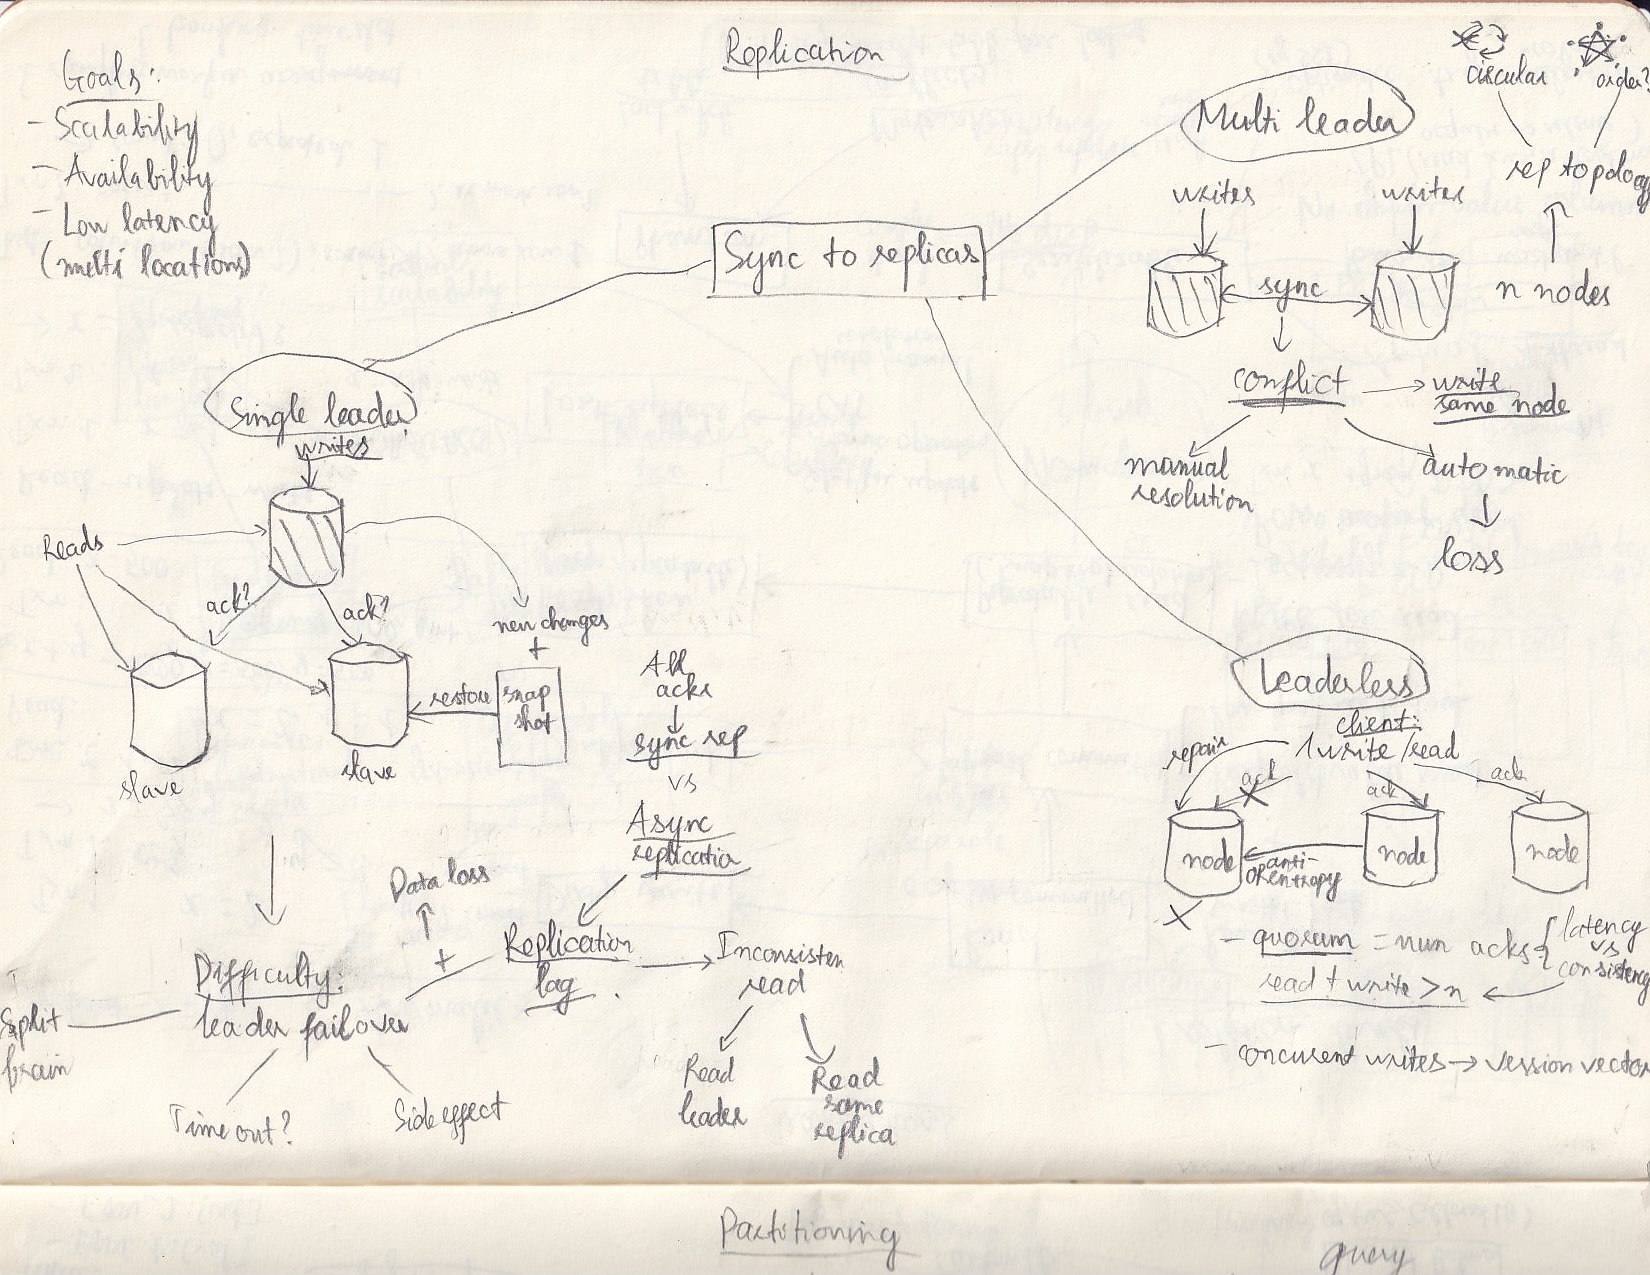 Replication
Goals:
- Scalability
- Availability
- Low latency
(multi locations)
Sync to replicas
Single leader
writes
Reads
ack?
ack?
new changes
+
snap
shot
restore
slave
slave
All
acks
sync rep
vs
Async
replicatio
Replication
lag
Data loss
+
Difficulty:
leader failover
Split
brain
Timeout?
Side effect
Inconsisten
read
Read
leader
Read
same
replica
Multi leader
circular
order?
rep topology
n nodes
writes
writes
sync
conflict
write
same node
manual
resolution
automatic
loss
Leaderless
client:
1 write/read
repair
ack
ack
ack
node
node
node
anti-
entropy
- quorum = num acks
latency
vs
consistency
read + write > n
- concurent writes → version vector
Partitioning
query